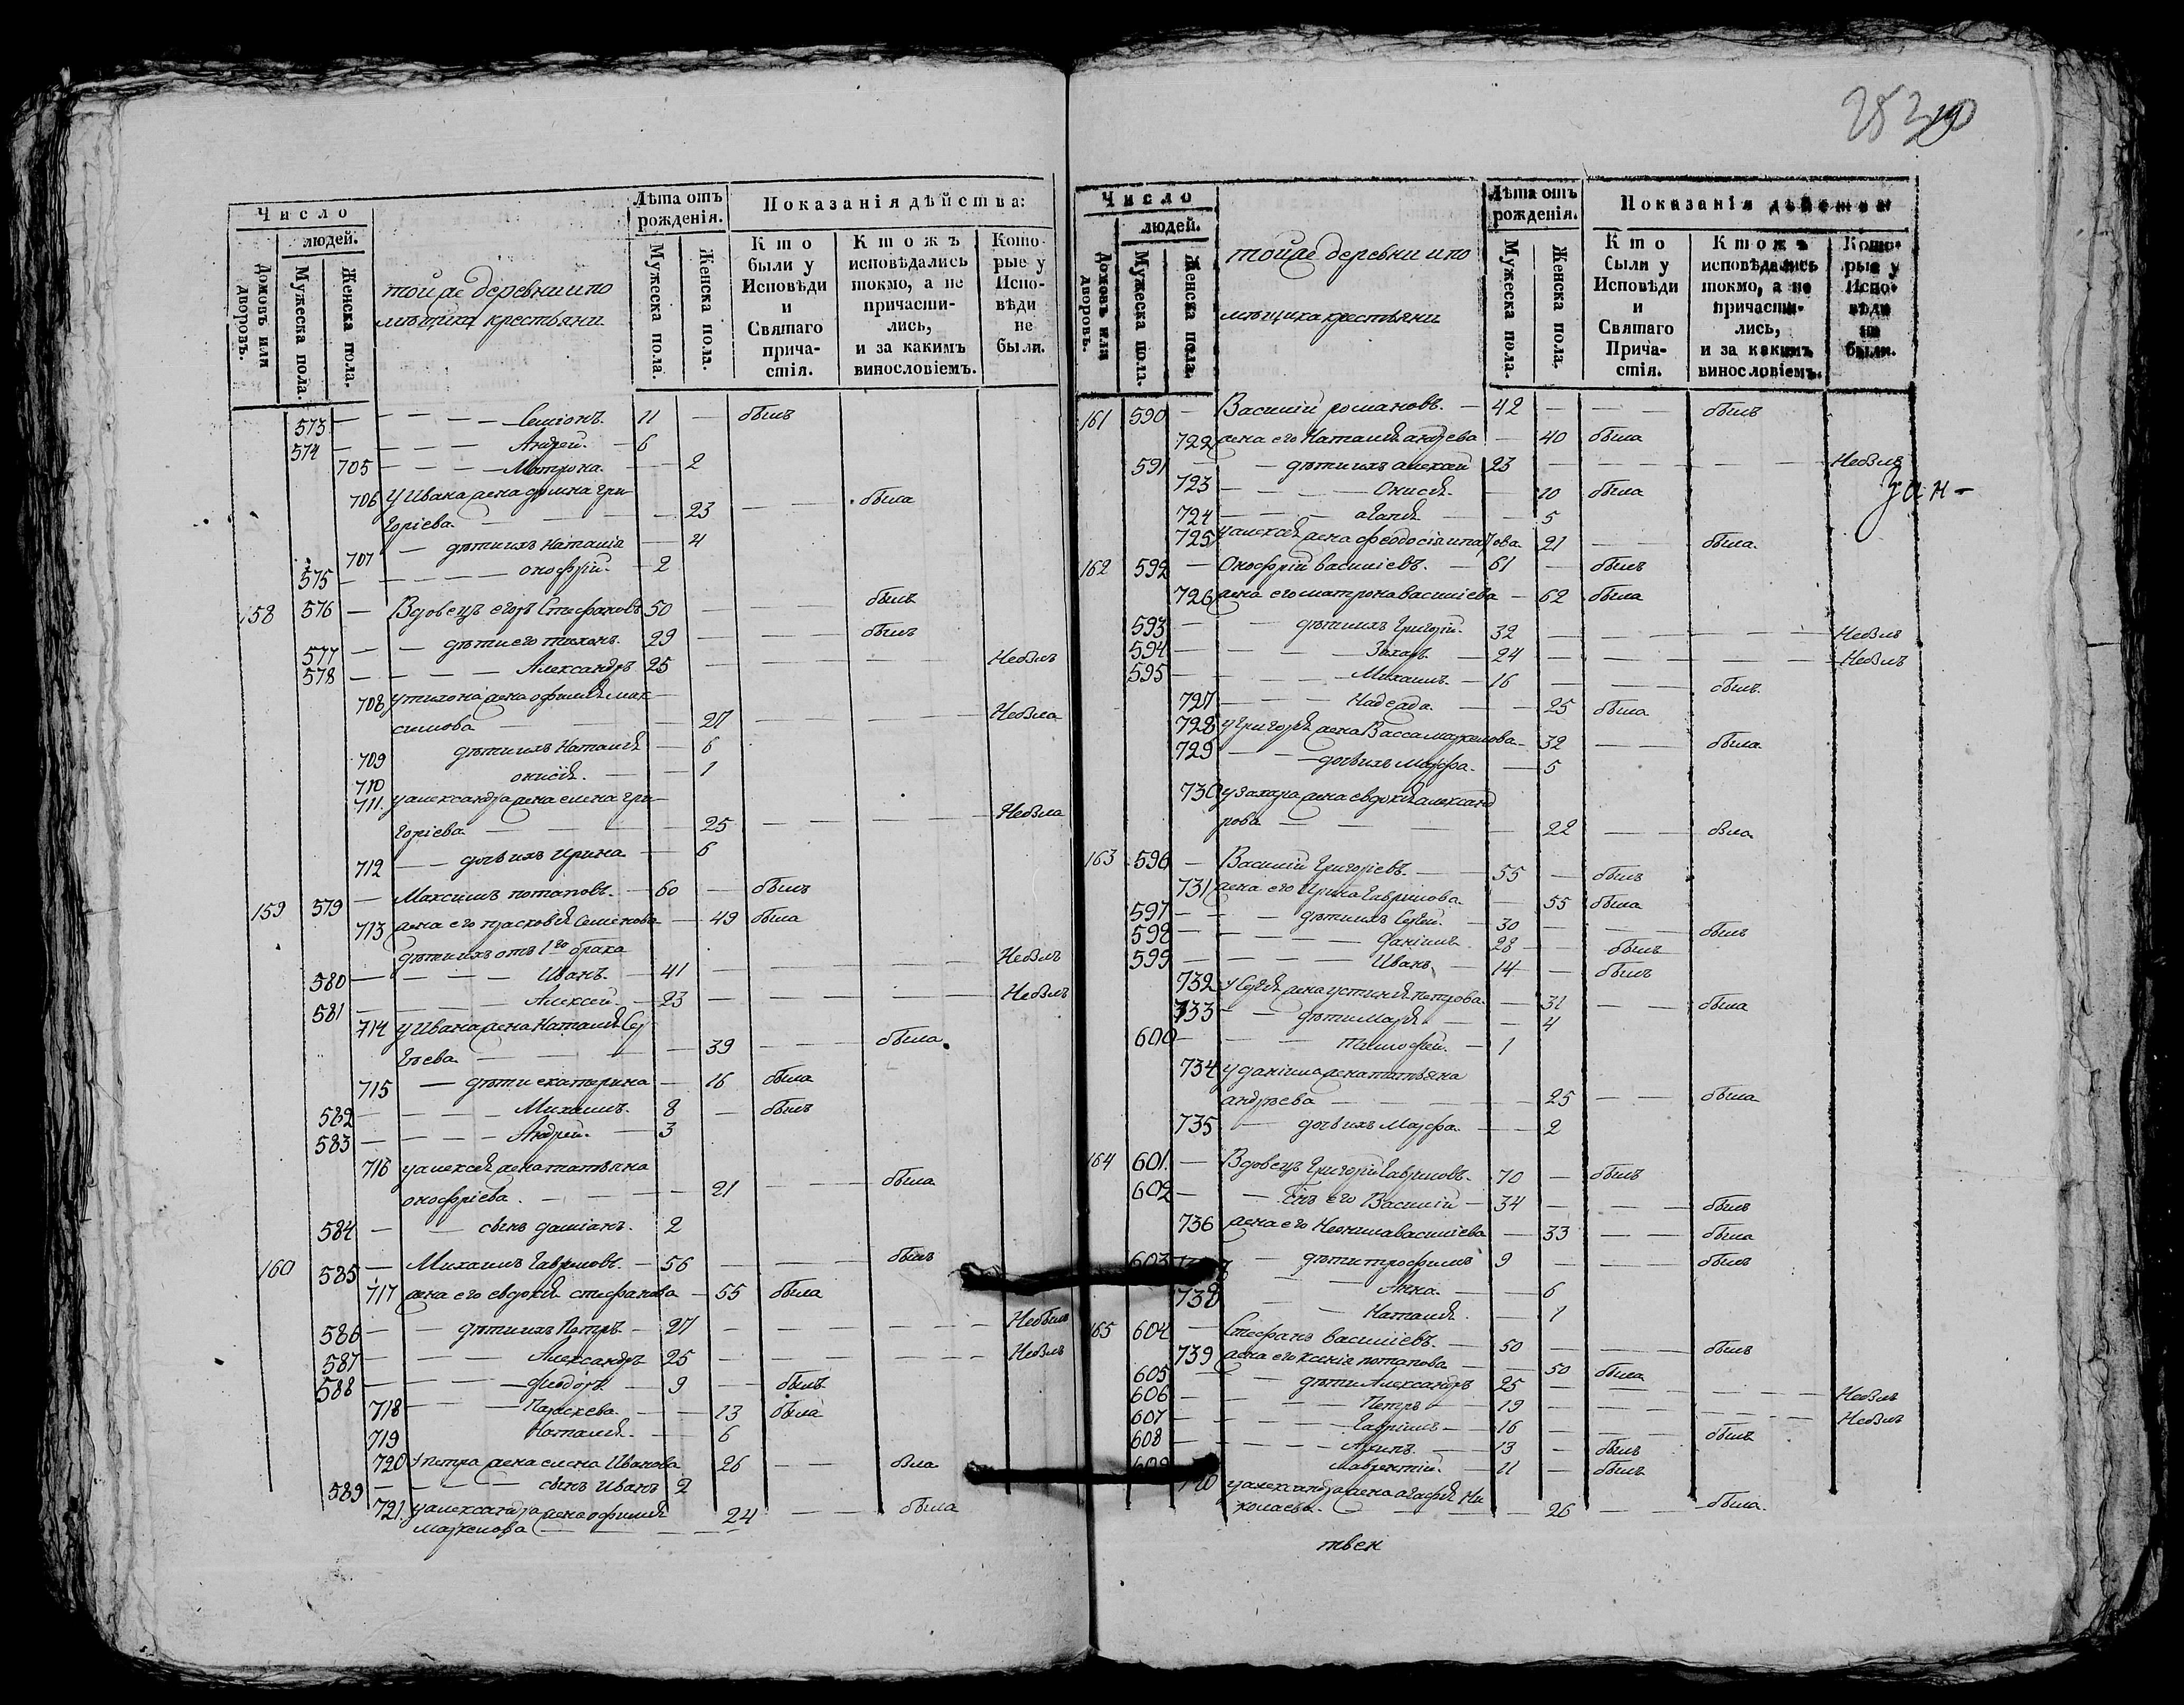 Число
людей.
Домовъ или дворовъ.
Мужеска пола.
Женска пола.
тойже деревни и по
мѣщика крестьяни
Лѣта отъ рожденія.
Мужеска пола.
Женска пола.
Показанія дѣйства:
Кто были у Исповѣди и Святаго причастія.
Ктожъ исповѣдались токмо, а не причастились, и за какимъ винословіемъ.
Которые у Исповѣди не были.
573 — — — — Семіонъ. 11 — былъ
574 — — — — Андрей. — 6
705 — — — — Матрона. — 2
706 У Ивана жена домна гри
горіева — — — 23 — — была
707 — дѣти ихъ Наталіа — 4
575 — — — — онофрій. — 2
158 576 — Вдовецъ егоръ Стефановъ 50 — — былъ
577 — — дѣти его тихонъ. 29 — — былъ
578 — — — — Александръ 25 — — — Небылъ
708 у тихона жена офимія мак
симова — — — 27 — — — Небыла
709 дѣти ихъ Наталія — 6
710 онисія. — — 1
711. у александра жена елена гри
горіева — — — 25 — — — Небыла
712 — — дочь ихъ Ирина — 6
159 579 — Максимъ потаповъ. — 60 — былъ
713 жена его прасковія Семенова — 49 была
дѣти ихъ отъ 1го брака
580 — — — — Иванъ. — 41 — — — Небылъ
581 — — — — Алексей. — 23 — — — Небылъ
714 у Ивана жена Наталія Сер
гѣева — — — 39 — — была.
715 — дѣти екатерина — 16 была
582 — — — — Михаилъ. 8 — былъ
583 — — — — Андрей. — 3
716 у алексея жена татьяна
онофріева. — — — 21 — — была
584 — — сынъ даміанъ. 2
160 585 — Михаилъ Гавриловъ. — 56 — — былъ
717 жена его евдокія стефанова — 55 была
586 — — дѣти ихъ Петръ. — 27 — — — Небылъ
587 — — — Александръ 25 — — — Небылъ
588 — — — — Феодоръ. — 9 — былъ
718 — — Параскева. — — 13 была
719 Наталія. — 6
720 у петра жена елена Иванова 26 — — была
589 — — — — сынъ Иванъ 2
721. у александра жена офимія
маркелова — — — 24 — — была
28 319
Число
людей.
Домовъ или дворовъ.
Мужеска пола.
Женска пола.
тойже деревни и по
мѣщика крестьяни
Лѣта отъ рожденія.
Мужеска пола.
Женска пола.
Показанія дѣйства
Кто были у Исповѣди и Святаго Причастія.
Ктожъ исповѣдались токмо, а не причастились, и за какимъ винословіемъ.
Которые у Исповѣди не были.
161 590 — Василій романовъ. — 42 — — былъ
722 жена его Наталія андреева — 40 была
591 — — дѣти ихъ алексей 23 — — — Небылъ
723 — — — — Онисія. — 10 была
724 — — — агапія — — 5
725 у алексея жена феодосіа ова. 21 — — была.
162 592 — Онофрій василіевъ. — 61 — былъ
726 жена его матрона василіева — 62 была
593 — — дѣти ихъ Григорій. 32 — — — Небылъ
594 — — — — Захаръ. — 24 — — — Небылъ
595 — — — — Михаилъ. — 16 — — былъ
727 — — — Надежда. — — 25 была
728 у Григорія жена Васса маркелова — 32 — — была
729 — — дочь ихъ марфа. — 5
730 у захара жена евдокія александ
рова — — — 22 — — была
163 596 — Василій Григоріевъ. — 55 — былъ
731 жена его Ирина Гаврилова — 55 была
597 — — — дѣти ихъ Сергей. — 30 — — былъ
598 — — — — Даніилъ. 28 — былъ
599 — — — — Иванъ. — 14 — былъ
732 у Сергея жена устинія петрова — 31 — — была
733 — — дѣти Марія — — 4
600 — — — Тимофей. — 1
734 у даніила жена татьяна
андреева — — — 25 — — была
735 — дочь ихъ Марфа. — 2
164 601. — Вдовецъ Григорій Гавриловъ. 70 — былъ
602 — — Сынъ его Василій — 34 — — былъ
736 жена его Неонила василіева — 33 — — была
603 — дѣти трофимъ 9 — — былъ
— — — Анна. — — 6
738 — Наталія. — 1
165 604 — Стефанъ василіевъ. — 50 — — былъ
739 жена его ксенія потапова — 50 была
605 — — дѣти Александръ 25 — — — Небылъ
606 — — — — Петръ — 19 — — — Небылъ
607 — — — — Гавріилъ — 16 — — былъ
608 — — — — 13 — былъ
609 Лаврентій. — 11 — былъ
740 у александра жена агафія Ни
колаева. — — — 26 — — была.
твен